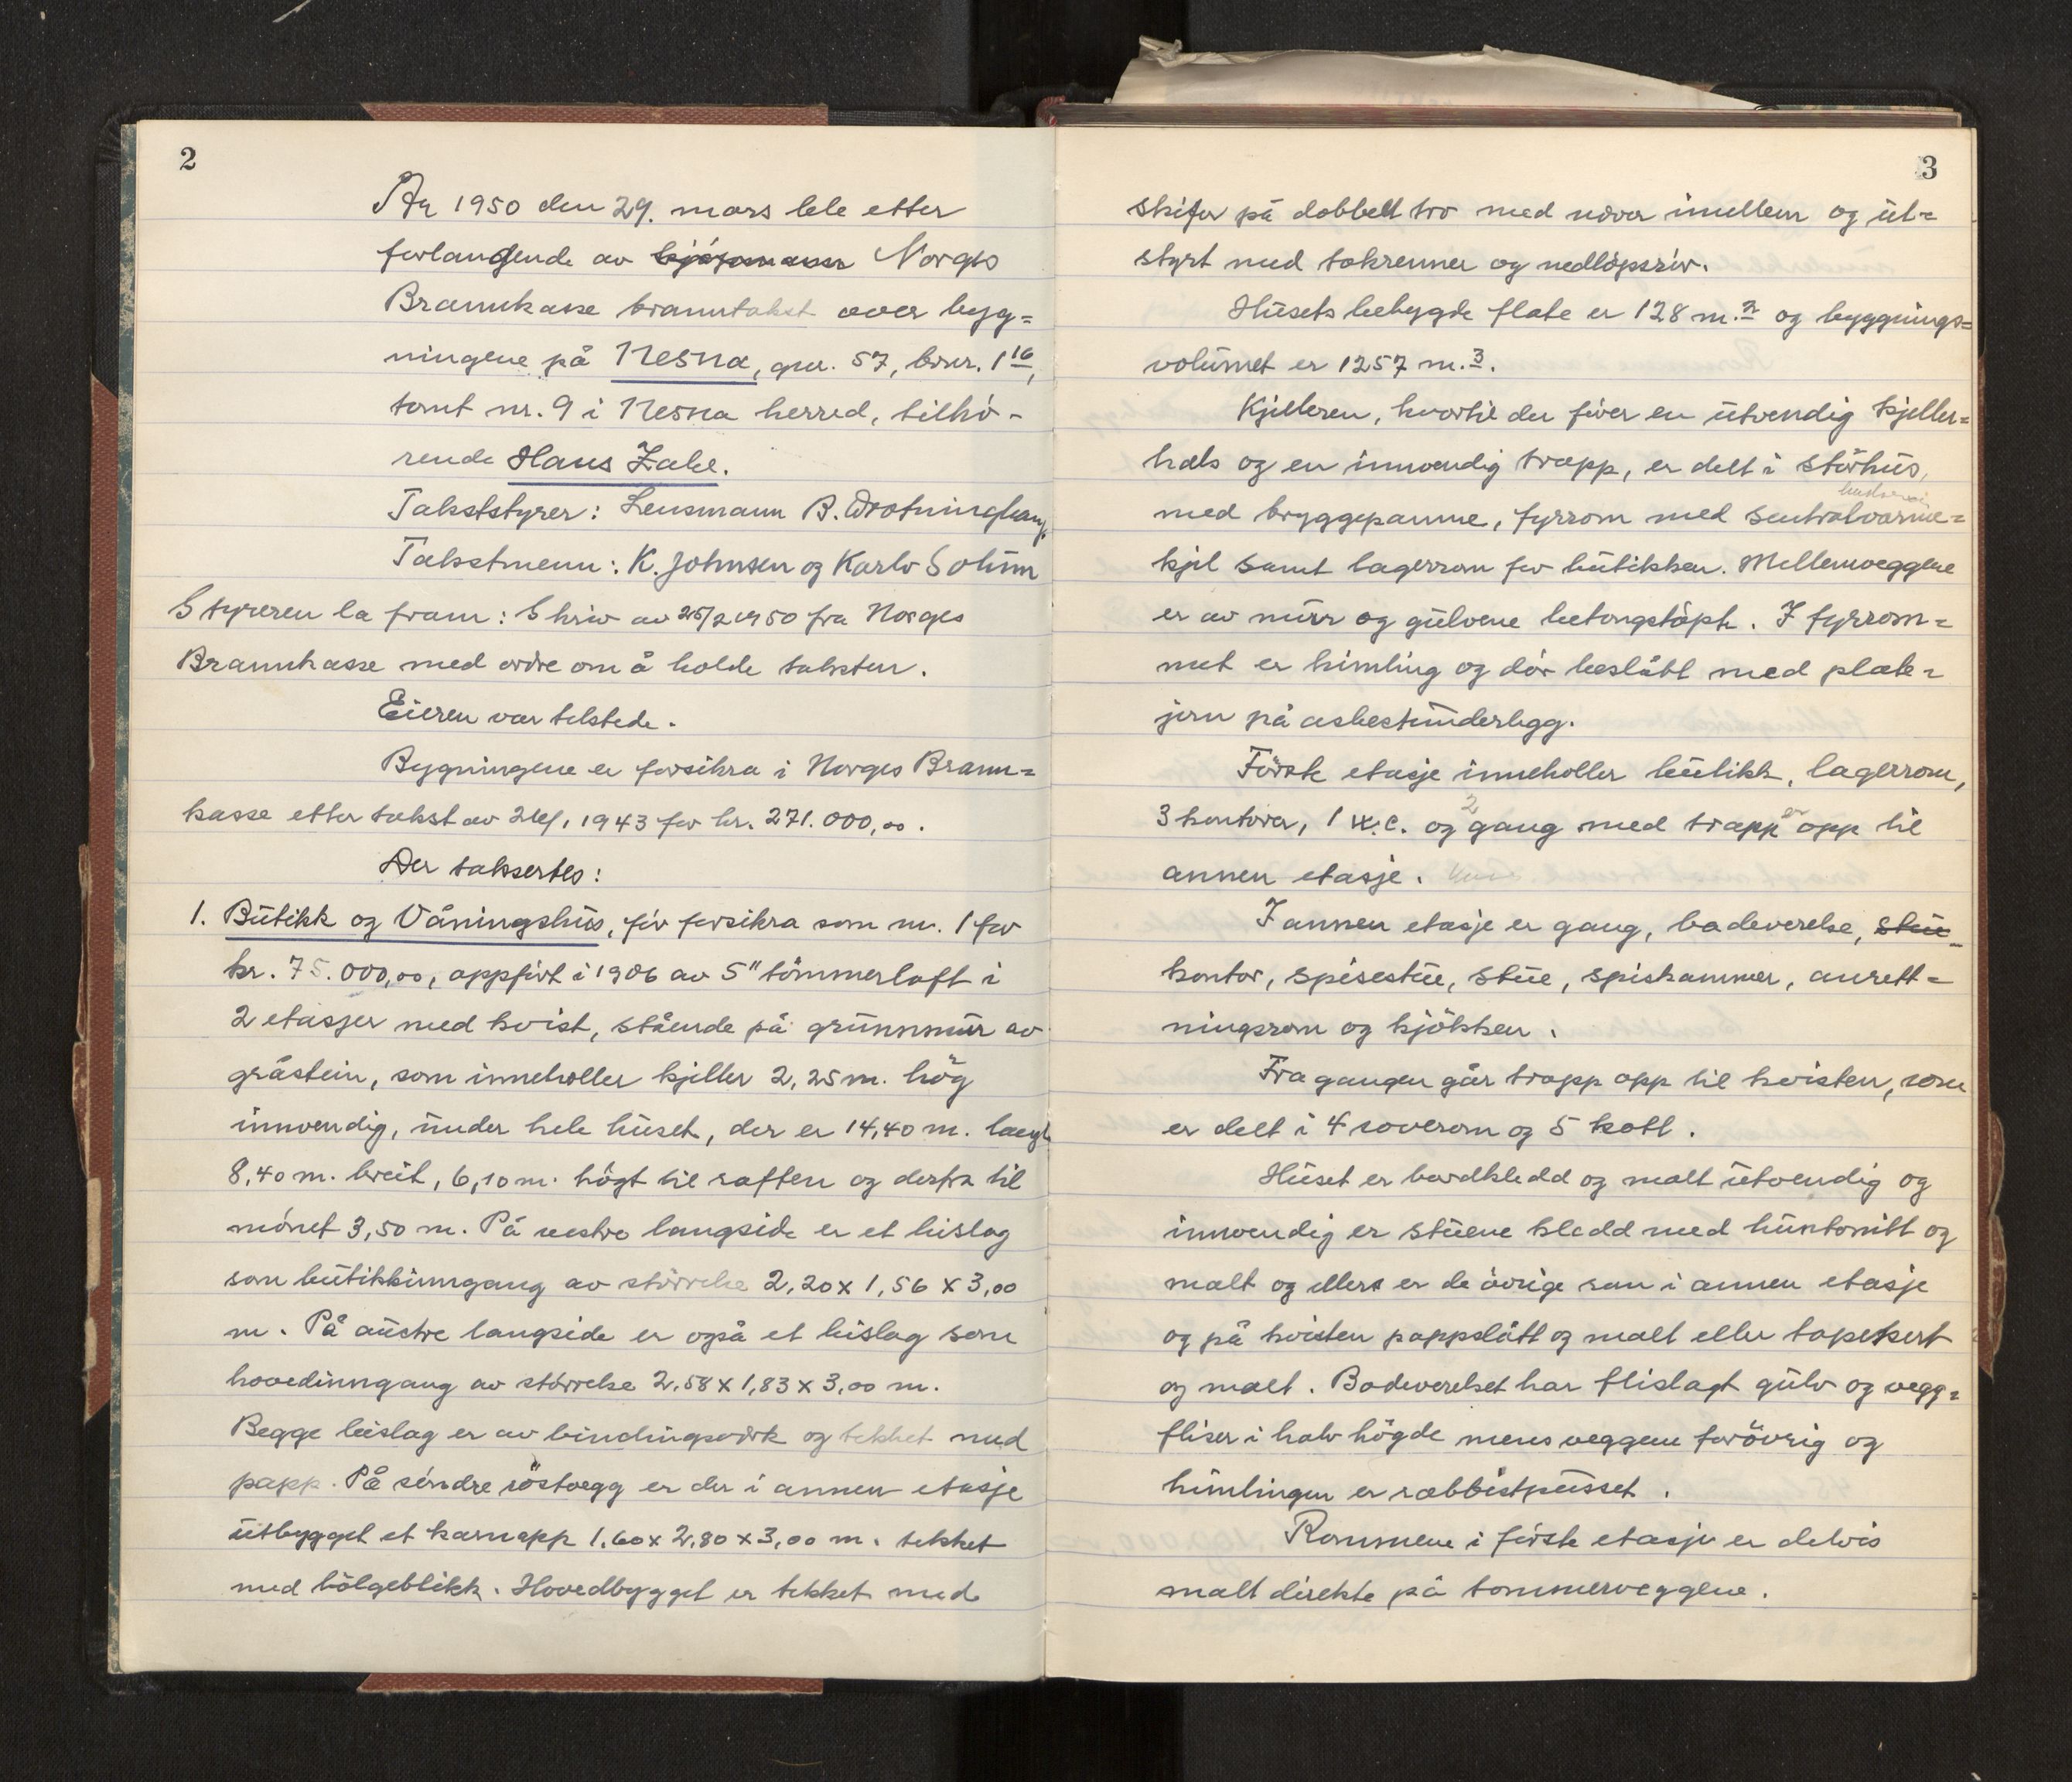 2
År 1950 den 29. mars ble etter
forlangende av kjøpmann Norges
Brannkasse branntakst over byg=
ningene på Nesna, gnr. 57, bnr. 1 16,
tomt nr. 9 i Nesna herred, tilhö-
rende Hans Zahl.
Takststyrer: Lensmann B. Drotninghaug.
Takstmenn: K. Johnsen og Karlo Solum
Styreren la fram: Skriv av 25/2 1950 fra Norges
Brannkasse med ordre om å holde taksten.
Eieren var tilstede.
Bygningene er forsikra i Norges Brann=
kasse etter takst av 1943 for kr. 271.000,00.
Der taksertes:
1. Butikk og Våningshus, för forsikra som nr. 1 for
kr. 75.000,00, oppfört i 1906 av 5" tömmerloft i
2 etasjer med kvist, stående på grunnmur av
gråstein, som inneholler kjeller 2,25 m. hög
innvendig, under hele huset, der er 14,40 m. langt
8,40 m. breit, 6,10 m. högt til raften og derfra til
mönet 3,50 m. På vestre langside er et bislag
som butikkinngang av störrelse 2,20 x 1,56 x 3,00
m. På austre langside er også et bislag som
hovedinngang av störrelse 2,58 x 1,83 x 3,00 m.
Begge bislag er av bindingsverk og tekket med
papp. På söndre röstvegg er der i annen etasje
utbygget et karnapp 1,60 x 2,80 x 3,00 m. tekket
med bölgeblikk. Hovedbygget er tekket med
3
skifer på dobbelt tro med næver imellem og ut=
styrt med takrenner og nedlöpsrör.
Husets bebygde flate er 128 m.2 og byggnings=
volumet er 1257 m.3.
Kjelleren, hvortil der förer en utvendig kjeller=
hals og en innvendig trapp, er delt i störhus,
med bryggepanne, fyrrom med sentralvarme=
kjel samt lagerrom for butikken. Mellemveggene
er av murr og gulvene betongstöpt. I fyrrom=
met er himling og dör beslått med plate=
jern på asbestunderlegg.
Förste etasje inneholler butikk, lagerrom,
3 kontorer, 1 w.c. og 2 gang med trapp er opp til
annen etasje.
I annen etasje er gang, badeværelse, stue
kontor, spisestue, stue, spiskammer, anrett=
ningsrom og kjökken.
Fra gangen går trapp opp til kvisten, som
er delt i 4 soverom og 5 kott.
Huset er bordkledd og malt utvendig og
innvendig er stuene kledd med huntonitt og
malt og ellers er de övrige rom i annen etasje
og på kvisten pappslått og malt eller tapetsert
og malt. Badeverelset har flislagt gulv og vegg=
fliser i halv högde mens veggene forövrig og
himlingen er rabbistpusset.
Rommene i förste etasje er delvis
malt direkte på tommerveggene.